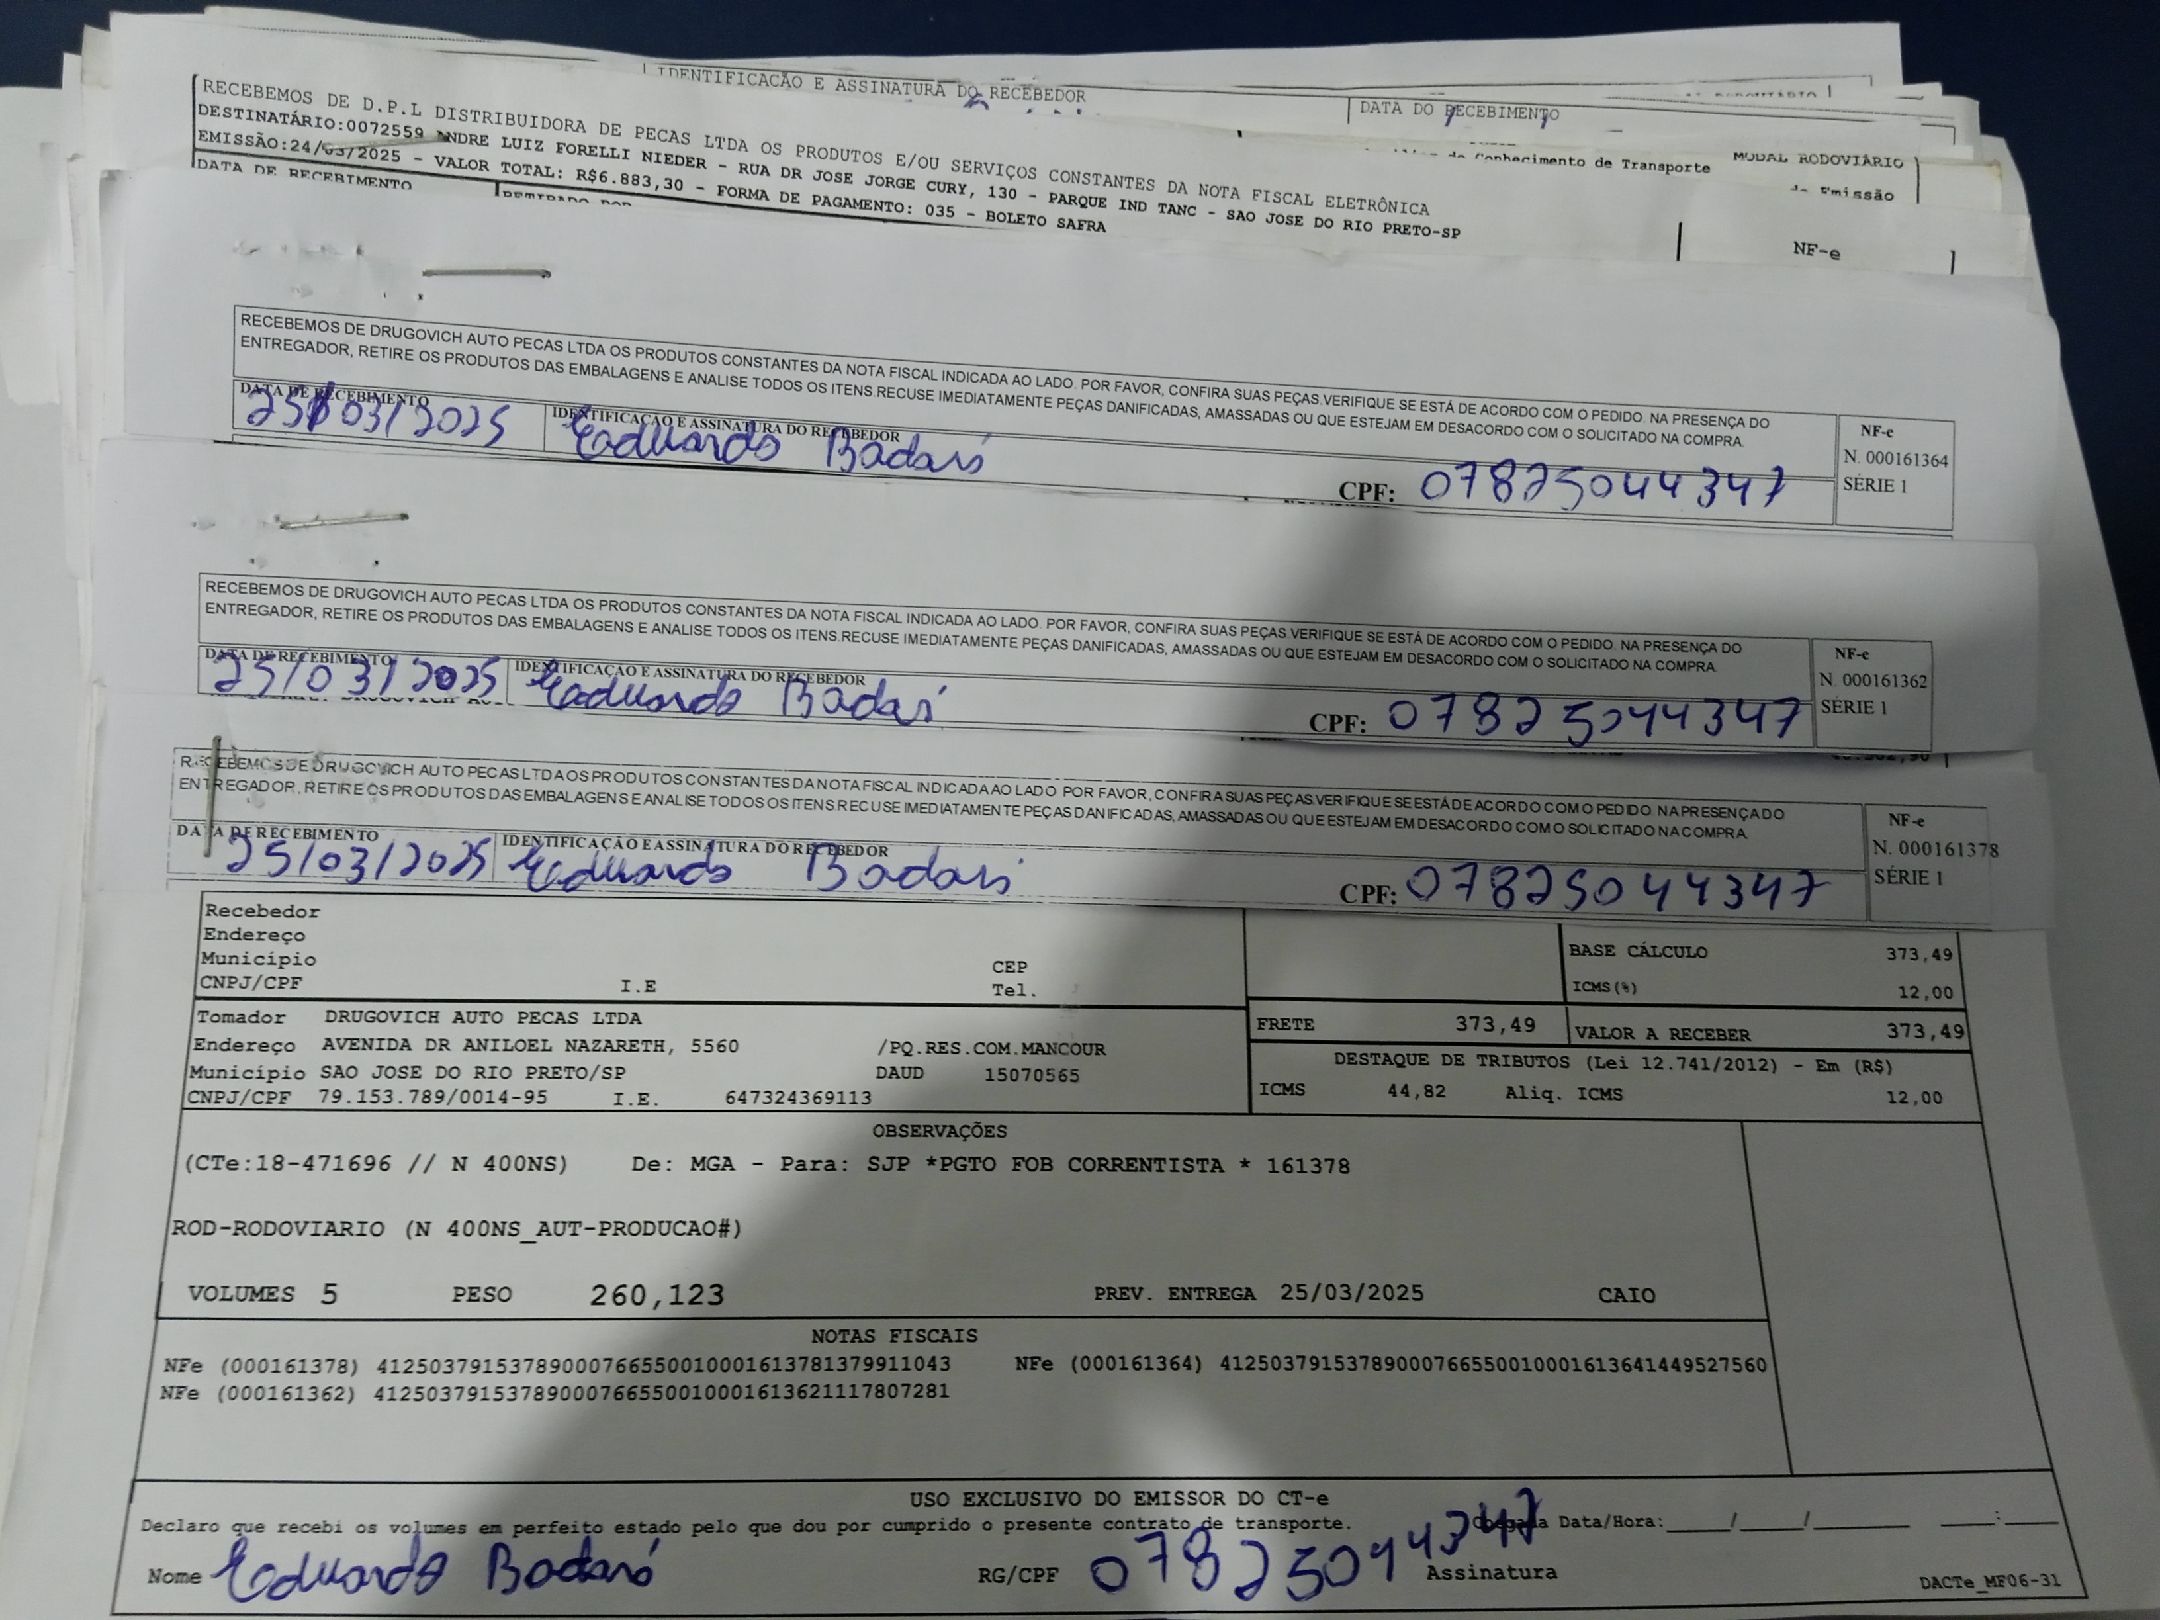 IDENTIFICAÇÃO E ASSINATURA DO RECEBEDOR
DATA DO RECEBIMENTO
RECEBEMOS DE D.P.L DISTRIBUIDORA DE PECAS LTDA OS PRODUTOS E/OU SERVIÇOS CONSTANTES DA NOTA FISCAL ELETRÔNICA
DESTINATÁRIO:0072559 ANDRE LUIZ FORELLI NIEDER - RUA DR JOSE JORGE CURY, 130 - PARQUE IND TANC - SAO JOSE DO RIO PRETO-SP
EMISSÃO:24/03/2025 - VALOR TOTAL: R$6.883,30 - FORMA DE PAGAMENTO: 035 - BOLETO SAFRA
DATA DE RECEBIMENTO
de Conhecimento de Transporte
MODAL RODOVIÁRIO
Emissão
NF-e
RECEBEMOS DE DRUGOVICH AUTO PECAS LTDA OS PRODUTOS CONSTANTES DA NOTA FISCAL INDICADA AO LADO. POR FAVOR, CONFIRA SUAS PEÇAS.VERIFIQUE SE ESTÁ DE ACORDO COM O PEDIDO. NA PRESENÇA DO
ENTREGADOR, RETIRE OS PRODUTOS DAS EMBALAGENS E ANALISE TODOS OS ITENS.RECUSE IMEDIATAMENTE PEÇAS DANIFICADAS, AMASSADAS OU QUE ESTEJAM EM DESACORDO COM O SOLICITADO NA COMPRA.
DATA DE RECEBIMENTO
25/03/2025
IDENTIFICAÇÃO E ASSINATURA DO RECEBEDOR
Eduardo Badaró
CPF: 07825044347
NF-e
N. 000161364
SÉRIE 1
RECEBEMOS DE DRUGOVICH AUTO PECAS LTDA OS PRODUTOS CONSTANTES DA NOTA FISCAL INDICADA AO LADO. POR FAVOR, CONFIRA SUAS PEÇAS.VERIFIQUE SE ESTÁ DE ACORDO COM O PEDIDO. NA PRESENÇA DO
ENTREGADOR, RETIRE OS PRODUTOS DAS EMBALAGENS E ANALISE TODOS OS ITENS.RECUSE IMEDIATAMENTE PEÇAS DANIFICADAS, AMASSADAS OU QUE ESTEJAM EM DESACORDO COM O SOLICITADO NA COMPRA.
DATA DE RECEBIMENTO
25/03/2025
IDENTIFICAÇÃO E ASSINATURA DO RECEBEDOR
Eduardo Badaró
CPF: 07825044347
NF-e
N. 000161362
SÉRIE 1
RECEBEMOS DE DRUGOVICH AUTO PECAS LTDA OS PRODUTOS CONSTANTES DA NOTA FISCAL INDICADA AO LADO. POR FAVOR, CONFIRA SUAS PEÇAS.VERIFIQUE SE ESTÁ DE ACORDO COM O PEDIDO. NA PRESENÇA DO
ENTREGADOR, RETIRE OS PRODUTOS DAS EMBALAGENS E ANALISE TODOS OS ITENS.RECUSE IMEDIATAMENTE PEÇAS DANIFICADAS, AMASSADAS OU QUE ESTEJAM EM DESACORDO COM O SOLICITADO NA COMPRA.
DATA DE RECEBIMENTO
25/03/2025
IDENTIFICAÇÃO E ASSINATURA DO RECEBEDOR
Eduardo Badaró
CPF: 07825044347
NF-e
N. 000161378
SÉRIE 1
Recebedor
Endereço
Município CEP
CNPJ/CPF I.E Tel.
BASE CÁLCULO 373,49
ICMS(%) 12,00
Tomador DRUGOVICH AUTO PECAS LTDA
Endereço AVENIDA DR ANILOEL NAZARETH, 5560 /PQ.RES.COM.MANCOUR
Município SAO JOSE DO RIO PRETO/SP DAUD 15070565
CNPJ/CPF 79.153.789/0014-95 I.E. 647324369113
FRETE 373,49 VALOR A RECEBER 373,49
DESTAQUE DE TRIBUTOS (Lei 12.741/2012) - Em (R$)
ICMS 44,82 Aliq. ICMS 12,00
OBSERVAÇÕES
(CTe:18-471696 // N 400NS) De: MGA - Para: SJP *PGTO FOB CORRENTISTA * 161378
ROD-RODOVIARIO (N 400NS_AUT-PRODUCAO#)
VOLUMES 5 PESO 260,123 PREV. ENTREGA 25/03/2025 CAIO
NOTAS FISCAIS
NFe (000161378) 41250379153789000766550010001613781379911043 NFe (000161364) 41250379153789000766550010001613641449527560
NFe (000161362) 41250379153789000766550010001613621117807281
USO EXCLUSIVO DO EMISSOR DO CT-e
Declaro que recebi os volumes em perfeito estado pelo que dou por cumprido o presente contrato de transporte. Chegada Data/Hora:_____/_____/________ _____:_____
Nome Eduardo Badaró RG/CPF 07825044347 Assinatura
DACTe_MF06-31